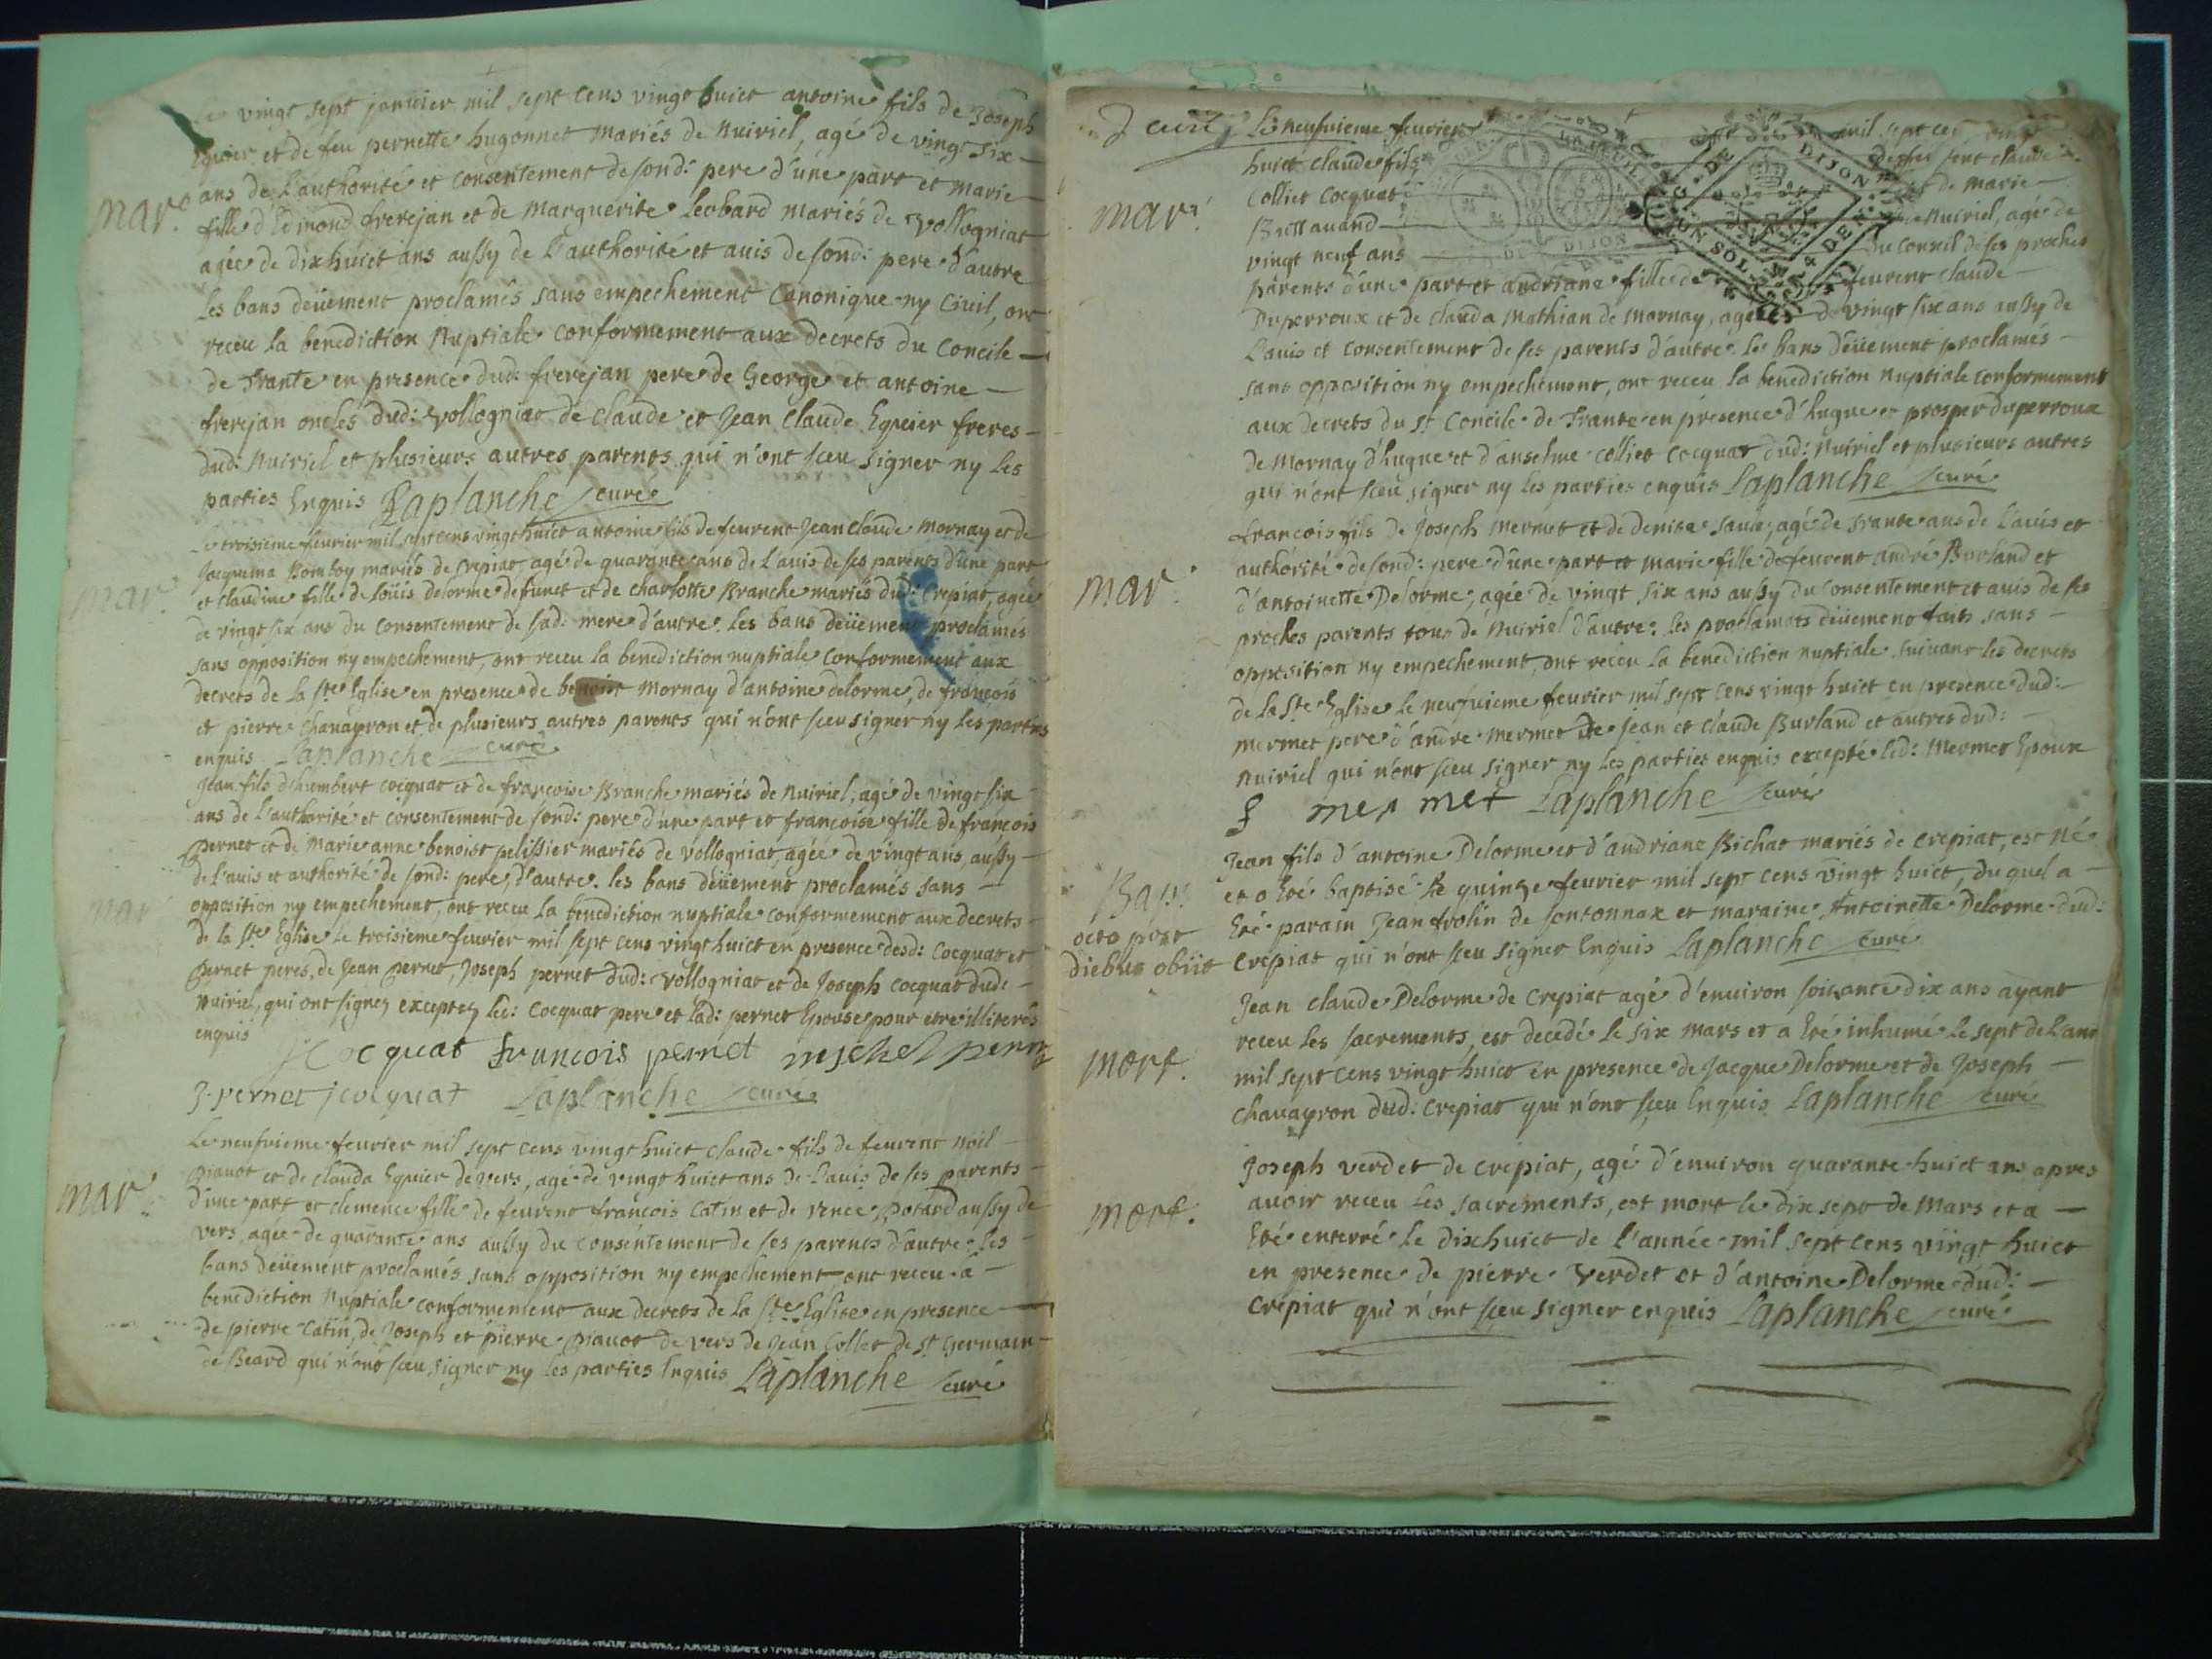 Le vingt sept janvier mil sept cens vingt huict antoine fils de Joseph
Eguier et de feu pernette hugonnet mariés de Nuiriel, agé de vingt six
ans de l'authorité et consentement de sond: pere d'une part et marie
mar:
fille d'Edmond frerejan et de Marguerite Leobard mariés de vollogniat
agée de dixhuict ans aussy de l'authorité et auis de sond: pere d'autre
les bans deüement proclamés sans empechement canonique ny ciuil, ont
receu la benediction Nuptiale conformement aux decrets du concile
de Trante en presence dud: frerejan pere de George et antoine
frerejan oncles dud: vollogniat de claude et Jean claude Eguier freres
dud: Nuiriel et plusieurs autres parents qui n'ont sceu signer ny les
parties Enquis Laplanche curé
Le troisieme feurier mil sept cens vingt huict antoine fils de feurent Jean claude Mornay et de
Jacquema Bomboy mariés de crepiat agé de quarante ans de l'auis de ses parents d'une part
mar:
et claudine fille de loüis delorme defunct et de charlotte Branche mariés dud: crepiat, agée
de vingt six ans du consentement de sad: mere d'autre. les bans deüement proclamés
sans opposition ny empechement, ont receu la benediction nuptiale conformement aux
decrets de la ste Eglise en presence de benoist Mornay d'antoine delorme, de francois
et pierre chanayron et de plusieurs autres parents qui n'ont sceu signer ny les parties
enquis Laplanche curé
Jean fils d'humbert cocquat et de françoise Branche mariés de Nuiriel, agé de vingt six
ans de l'authorité et consentement de sond: pere d'une part et françoise fille de françois
pernet et de Marie anne benoist pelissier mariés de vollogniat, agée de vingt ans aussy
de l'auis et authorité de sond: pere d'autre. les bans deüement proclamés sans
mar
opposition ny empechement, ont receu la benediction nuptiale conformement aux decrets
de la ste Eglise le troisieme feurier mil sept cens vingt huict en presence desd: cocquat et
pernet peres, de Jean pernet, Joseph pernet dud: vollogniat et de Joseph cocquat dud:
Nuiriel, qui ont signez exceptez led: cocquat pere et lad: pernet Epouse pour etre illiterés
enquis
J Cocquat francois pernet michel pernet
J. pernet j cocquat Laplanche curé
Le neufuieme feurier mil sept cens vingt huict claude fils de feurent noil
piauot et de clauda Eguier de vers, agé de vingt huict ans de l'auis de ses parents
mar:
d'une part et clemence fille de feurent françois Catin et de potard aussy de
vers, agée de quarante ans aussy du consentement de ses parents d'autre. les
bans deüement proclamés sans opposition ny empechement ont receu a
benediction Nuptiale conformement aux decrets de la ste Eglise en presence
de pierre Catin, de Joseph et pierre piauot de vers de Jean Collet de st Germain
de Beard qui n'ont sceu signer ny les parties Enquis Laplanche curé
Le neufuieme feurier mil sept cens vingt
huict claude fils de feurent claude
Colliet Cocquat de marie
mar:
Buttauand Nuiriel, agé de
vingt neuf ans du conseil de ses proches
parents d'une part et andriane fille de feurent claude
Duperroux et de clauda Mathian de Mornay, agée de vingt six ans aussy de
l'auis et consentement de ses parents d'autre. les bans deüement proclamés
sans opposition ny empechement, ont receu la benediction nuptiale conformement
aux decrets du st Concile de Trante en presence d'hugue et prosper duperroux
de Mornay d'hugue et d'anselme colliet cocquat dud: Nuiriel et plusieurs autres
qui n'ont sceu signer ny les parties enquis Laplanche curé
DIJON
UN SOL
G. DE
4 DE
francois fils de Joseph Mermet et de denise agé de trante ans de l'auis et
authorité de sond: pere d'une part et marie fille de feurent andré Burland et
mar:
d'antoinette Delorme, agée de vingt six ans aussy du consentement et auis de ses
proches parents tous de Nuiriel d'autre: les proclamats deüement faits sans
opposition ny empechement, ont receu la benediction nuptiale suiuant les decrets
de la ste Eglise le neufuieme feurier mil sept cens vingt huict en presence dud:
mermet pere d'andre mermet de Jean et claude Burland et autres dud:
Nuiriel qui n'ont sceu signer ny les parties enquis excepté led: Mermet Epoux
f mermet Laplanche curé
Jean fils d'antoine Delorme et d'andriane Bichat mariés de crepiat, est né
Bap:
et a Eté baptisé le quinze feurier mil sept cens vingt huict, du quel a
octo post
Eté parain Jean frolin de sontonnax et maraine Antoinette Delorme dud:
diebus obiit
crepiat qui n'ont sceu signer Enquis Laplanche curé
Jean claude Delorme de crepiat agé d'enuiron soixante dix ans ayant
receu les sacrements, est decedé le six mars et a Eté inhumé le sept de l'ann
mort.
mil sept cens vingt huict en presence de Jacque Delorme et de Joseph
chanayron dud: crepiat qui n'ont sceu Enquis Laplanche curé
Joseph verdet de crepiat, agé d'enuiron quarante huict ans apres
mort.
auoir receu les sacrements, est mort le dix sept de mars et a
Eté enterré le dixhuict de l'année mil sept cens vingt huict
en presence de pierre verdet et d'antoine Delorme dud:
crepiat qui n'ont sceu signer enquis Laplanche curé